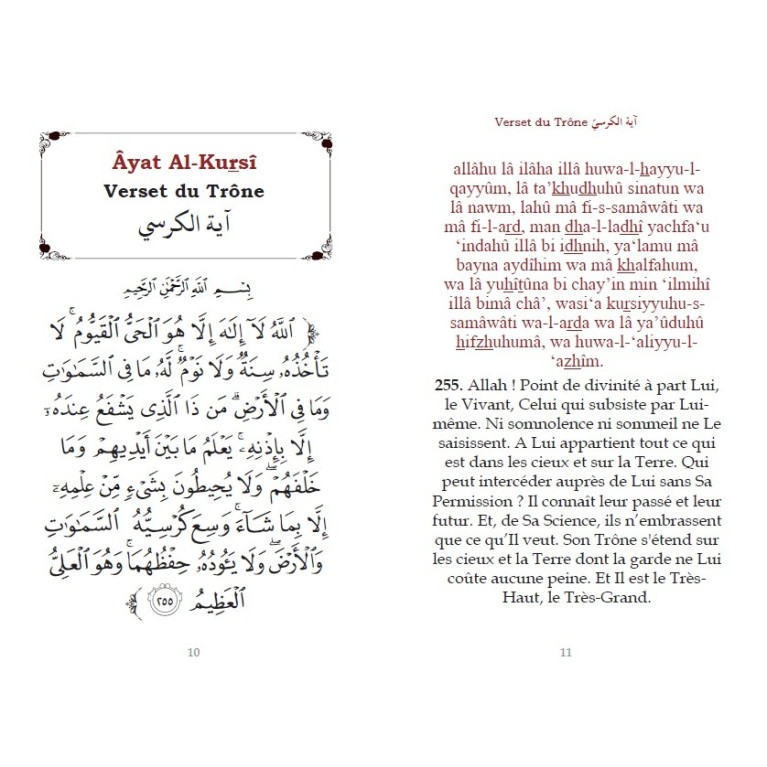 Âyat Al-Kursî
Verset du Trône
آية الكرسي
بِسْمِ اللَّهِ الرَّحْمَٰنِ الرَّحِيمِ
﴿ اللَّهُ لَا إِلَٰهَ إِلَّا هُوَ الْحَيُّ الْقَيُّومُ ۚ لَا
تَأْخُذُهُ سِنَةٌ وَلَا نَوْمٌ ۚ لَّهُ مَا فِي السَّمَاوَاتِ
وَمَا فِي الْأَرْضِ ۗ مَن ذَا الَّذِي يَشْفَعُ عِندَهُ
إِلَّا بِإِذْنِهِ ۚ يَعْلَمُ مَا بَيْنَ أَيْدِيهِمْ وَمَا
خَلْفَهُمْ ۖ وَلَا يُحِيطُونَ بِشَيْءٍ مِّنْ عِلْمِهِ
إِلَّا بِمَا شَاءَ ۚ وَسِعَ كُرْسِيُّهُ السَّمَاوَاتِ
وَالْأَرْضَ ۖ وَلَا يَئُودُهُ حِفْظُهُمَا ۚ وَهُوَ الْعَلِيُّ
الْعَظِيمُ ٢٥٥ ﴾
10
Verset du Trône آية الكرسيّ
allâhu lâ ilâha illâ huwa-l-hayyu-l-
qayyûm, lâ ta’khudhuhû sinatun wa
lâ nawm, lahû mâ fi-s-samâwâti wa
mâ fi-l-ard, man dha-l-ladhî yachfa‘u
‘indahû illâ bi idhnih, ya‘lamu mâ
bayna aydîhim wa mâ khalfahum,
wa lâ yuhîtûna bi chay’in min ‘ilmihî
illâ bimâ châ’, wasi‘a kursiyyuhu-s-
samâwâti wa-l-arda wa lâ ya’ûduhû
hifzhuhumâ, wa huwa-l-‘aliyyu-l-
‘azhîm.
255. Allah ! Point de divinité à part Lui,
le Vivant, Celui qui subsiste par Lui-
même. Ni somnolence ni sommeil ne Le
saisissent. A Lui appartient tout ce qui
est dans les cieux et sur la Terre. Qui
peut intercéder auprès de Lui sans Sa
Permission ? Il connaît leur passé et leur
futur. Et, de Sa Science, ils n’embrassent
que ce qu’Il veut. Son Trône s'étend sur
les cieux et la Terre dont la garde ne Lui
coûte aucune peine. Et Il est le Très-
Haut, le Très-Grand.
11